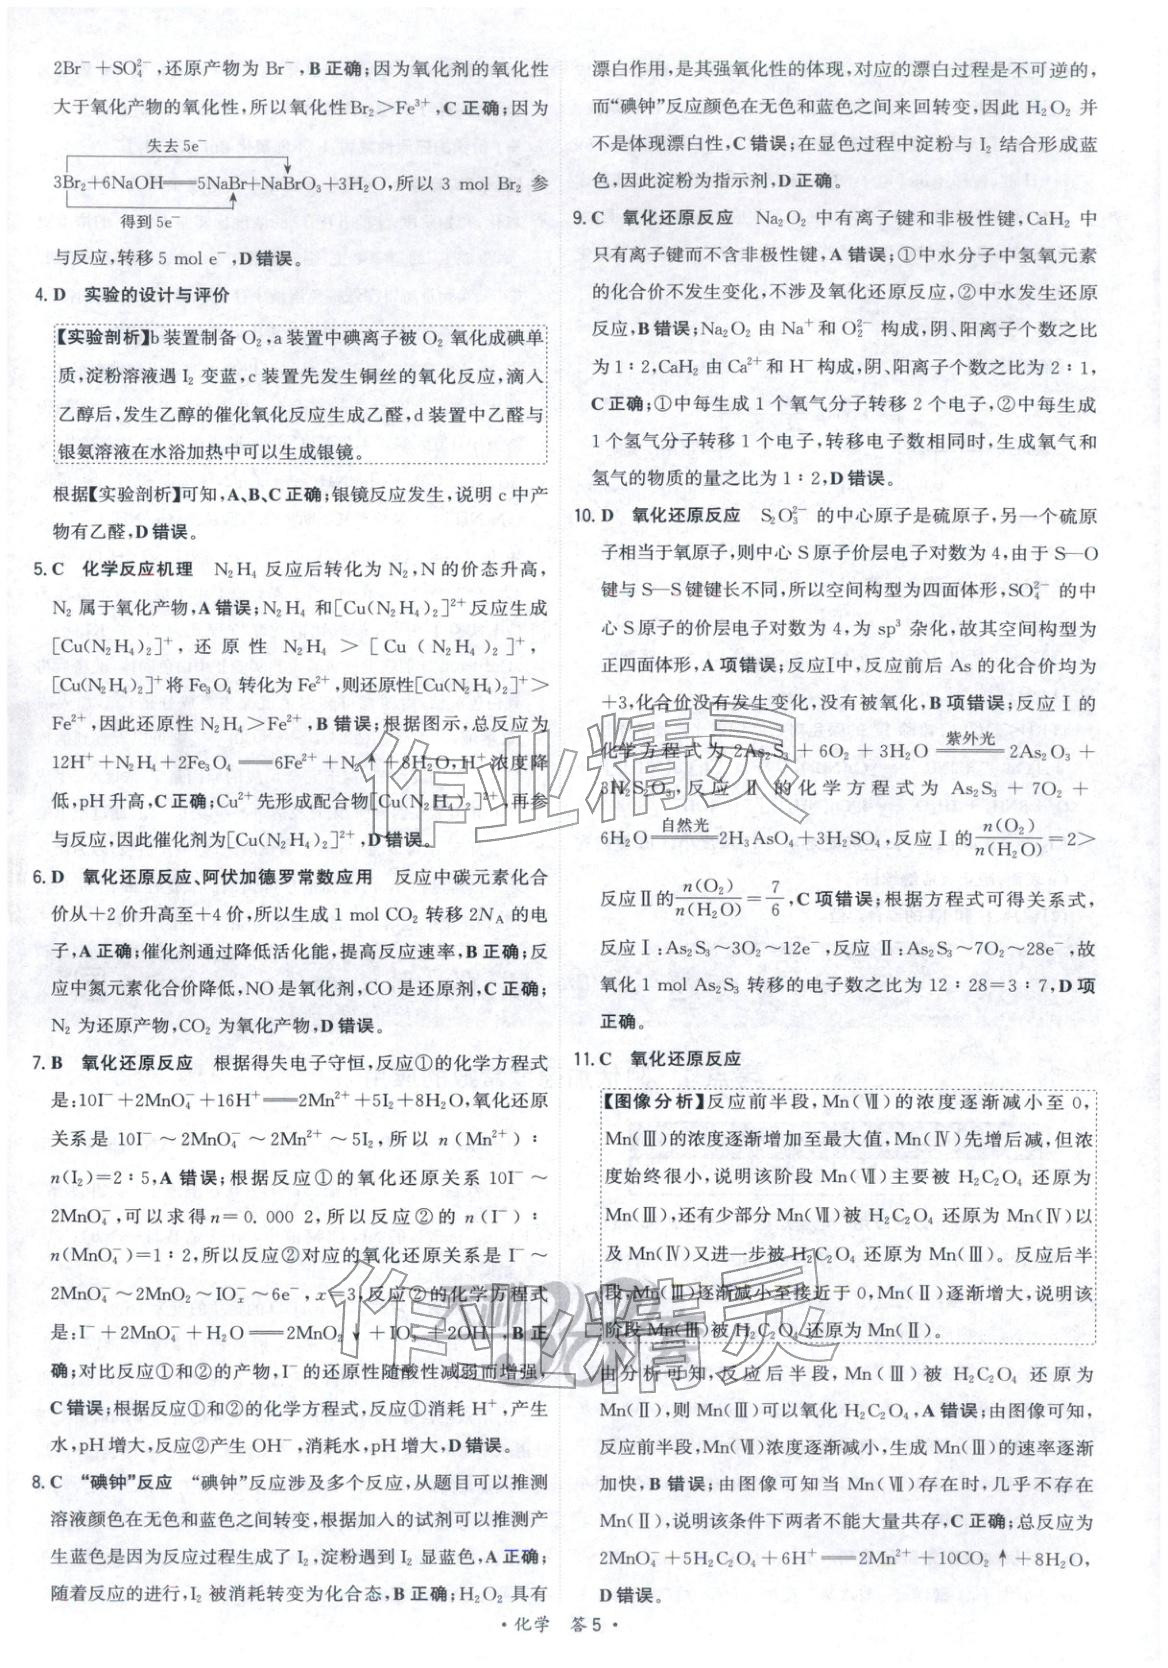 2Br⁻+SO₄²⁻,还原产物为 Br⁻,B正确;因为氧化剂的氧化性
大于氧化产物的氧化性,所以氧化性Br₂>Fe³⁺,C正确;因为
失去 5e⁻
3Br₂+6NaOH══5NaBr+NaBrO₃+3H₂O,所以 3 mol Br₂ 参
得到 5e⁻
与反应,转移 5 mol e⁻,D错误。
4. D 实验的设计与评价
【实验剖析】b装置制备 O₂,a装置中碘离子被 O₂ 氧化成碘单
质,淀粉溶液遇 I₂ 变蓝,c 装置先发生铜丝的氧化反应,滴入
乙醇后,发生乙醇的催化氧化反应生成乙醛,d 装置中乙醛与
银氨溶液在水浴加热中可以生成银镜。
根据【实验剖析】可知,A、B、C正确;银镜反应发生,说明 c 中产
物有乙醛,D错误。
5. C 化学反应机理 N₂H₄ 反应后转化为 N₂,N的价态升高,
N₂ 属于氧化产物,A错误;N₂H₄ 和[Cu(N₂H₄)₂]²⁺反应生成
[Cu(N₂H₄)₂]⁺,还原性 N₂H₄ > [Cu(N₂H₄)₂]⁺,
[Cu(N₂H₄)₂]⁺将 Fe₃O₄ 转化为 Fe²⁺,则还原性[Cu(N₂H₄)₂]⁺>
Fe²⁺,因此还原性 N₂H₄>Fe²⁺,B错误;根据图示,总反应为
12H⁺+N₂H₄+2Fe₃O₄══6Fe²⁺+N₂↑+8H₂O,H⁺浓度降
低,pH升高,C正确;Cu²⁺先形成配合物[Cu(N₂H₄)₂]²⁺,再参
与反应,因此催化剂为[Cu(N₂H₄)₂]²⁺,D错误。
6. D 氧化还原反应、阿伏加德罗常数应用 反应中碳元素化合
价从+2价升高至+4价,所以生成 1 mol CO₂ 转移 2Nₐ 的电
子,A正确;催化剂通过降低活化能,提高反应速率,B正确;反
应中氮元素化合价降低,NO是氧化剂,CO是还原剂,C正确;
N₂ 为还原产物,CO₂ 为氧化产物,D错误。
7. B 氧化还原反应 根据得失电子守恒,反应①的化学方程式
是:10I⁻+2MnO₄⁻+16H⁺══2Mn²⁺+5I₂+8H₂O,氧化还原
关系是 10I⁻~2MnO₄⁻~2Mn²⁺~5I₂,所以 n(Mn²⁺)∶
n(I₂)=2∶5,A错误;根据反应①的氧化还原关系 10I⁻~
2MnO₄⁻,可以求得 n=0.000 2,所以反应②的 n(I⁻)∶
n(MnO₄⁻)=1∶2,所以反应②对应的氧化还原关系是 I⁻~
2MnO₄⁻~2MnO₂~IOₓ⁻~6e⁻,x=3,反应②的化学方程式
是:I⁻+2MnO₄⁻+H₂O══2MnO₂↓+IO₃⁻+2OH⁻,B正
确;对比反应①和②的产物,I⁻的还原性随酸性减弱而增强,
C错误;根据反应①和②的化学方程式,反应①消耗 H⁺,产生
水,pH增大,反应②产生 OH⁻,消耗水,pH增大,D错误。
8. C “碘钟”反应 “碘钟”反应涉及多个反应,从题目可以推测
溶液颜色在无色和蓝色之间转变,根据加入的试剂可以推测产
生蓝色是因为反应过程生成了 I₂,淀粉遇到 I₂ 显蓝色,A正确;
随着反应的进行,I₂ 被消耗转变为化合态,B正确;H₂O₂ 具有
漂白作用,是其强氧化性的体现,对应的漂白过程是不可逆的,
而“碘钟”反应颜色在无色和蓝色之间来回转变,因此 H₂O₂ 并
不是体现漂白性,C错误;在显色过程中淀粉与 I₂ 结合形成蓝
色,因此淀粉为指示剂,D正确。
9. C 氧化还原反应 Na₂O₂ 中有离子键和非极性键,CaH₂ 中
只有离子键而不含非极性键,A错误;①中水分子中氢氧元素
的化合价不发生变化,不涉及氧化还原反应,②中水发生还原
反应,B错误;Na₂O₂ 由 Na⁺和 O₂²⁻ 构成,阴、阳离子个数之比
为1∶2,CaH₂ 由 Ca²⁺和 H⁻构成,阴、阳离子个数之比为 2∶1,
C正确;①中每生成 1 个氧气分子转移 2 个电子,②中每生成
1个氢气分子转移 1 个电子,转移电子数相同时,生成氧气和
氢气的物质的量之比为 1∶2,D错误。
10. D 氧化还原反应 S₂O₃²⁻ 的中心原子是硫原子,另一个硫原
子相当于氧原子,则中心 S 原子价层电子对数为 4,由于 S—O
键与 S—S 键键长不同,所以空间构型为四面体形,SO₄²⁻ 的中
心 S 原子的价层电子对数为 4,为 sp³ 杂化,故其空间构型为
正四面体形,A项错误;反应Ⅰ中,反应前后 As 的化合价均为
+3,化合价没有发生变化,没有被氧化,B项错误;反应Ⅰ的
化学方程式为 2As₂S₃+6O₂+3H₂O ══(紫外光) 2As₂O₃+
3H₂S₂O₃,反应Ⅱ的化学方程式为 As₂S₃+7O₂+
6H₂O ══(自然光) 2H₃AsO₄+3H₂SO₄,反应Ⅰ的 n(O₂)/n(H₂O)=2>
反应Ⅱ的 n(O₂)/n(H₂O)=7/6,C项错误;根据方程式可得关系式,
反应Ⅰ:As₂S₃~3O₂~12e⁻,反应Ⅱ:As₂S₃~7O₂~28e⁻,故
氧化 1 mol As₂S₃ 转移的电子数之比为 12∶28=3∶7,D项
正确。
11. C 氧化还原反应
【图像分析】反应前半段,Mn(Ⅶ)的浓度逐渐减小至 0,
Mn(Ⅲ)的浓度逐渐增加至最大值,Mn(Ⅳ)先增后减,但浓
度始终很小,说明该阶段 Mn(Ⅶ)主要被 H₂C₂O₄ 还原为
Mn(Ⅲ),还有少部分 Mn(Ⅶ)被 H₂C₂O₄ 还原为 Mn(Ⅳ)以
及 Mn(Ⅳ)又进一步被 H₂C₂O₄ 还原为 Mn(Ⅲ)。反应后半
段,Mn(Ⅲ)逐渐减小至接近于 0,Mn(Ⅱ)逐渐增大,说明该
阶段 Mn(Ⅲ)被 H₂C₂O₄ 还原为 Mn(Ⅱ)。
由分析可知,反应后半段,Mn(Ⅲ)被 H₂C₂O₄ 还原为
Mn(Ⅱ),则 Mn(Ⅲ)可以氧化 H₂C₂O₄,A错误;由图像可知,
反应前半段,Mn(Ⅶ)浓度逐渐减小,生成 Mn(Ⅲ)的速率逐渐
加快,B错误;由图像可知当 Mn(Ⅶ)存在时,几乎不存在
Mn(Ⅱ),说明该条件下两者不能大量共存,C正确;总反应为
2MnO₄⁻+5H₂C₂O₄+6H⁺══2Mn²⁺+10CO₂↑+8H₂O,
D错误。
·化学 答 5·
作业精灵
作业精灵